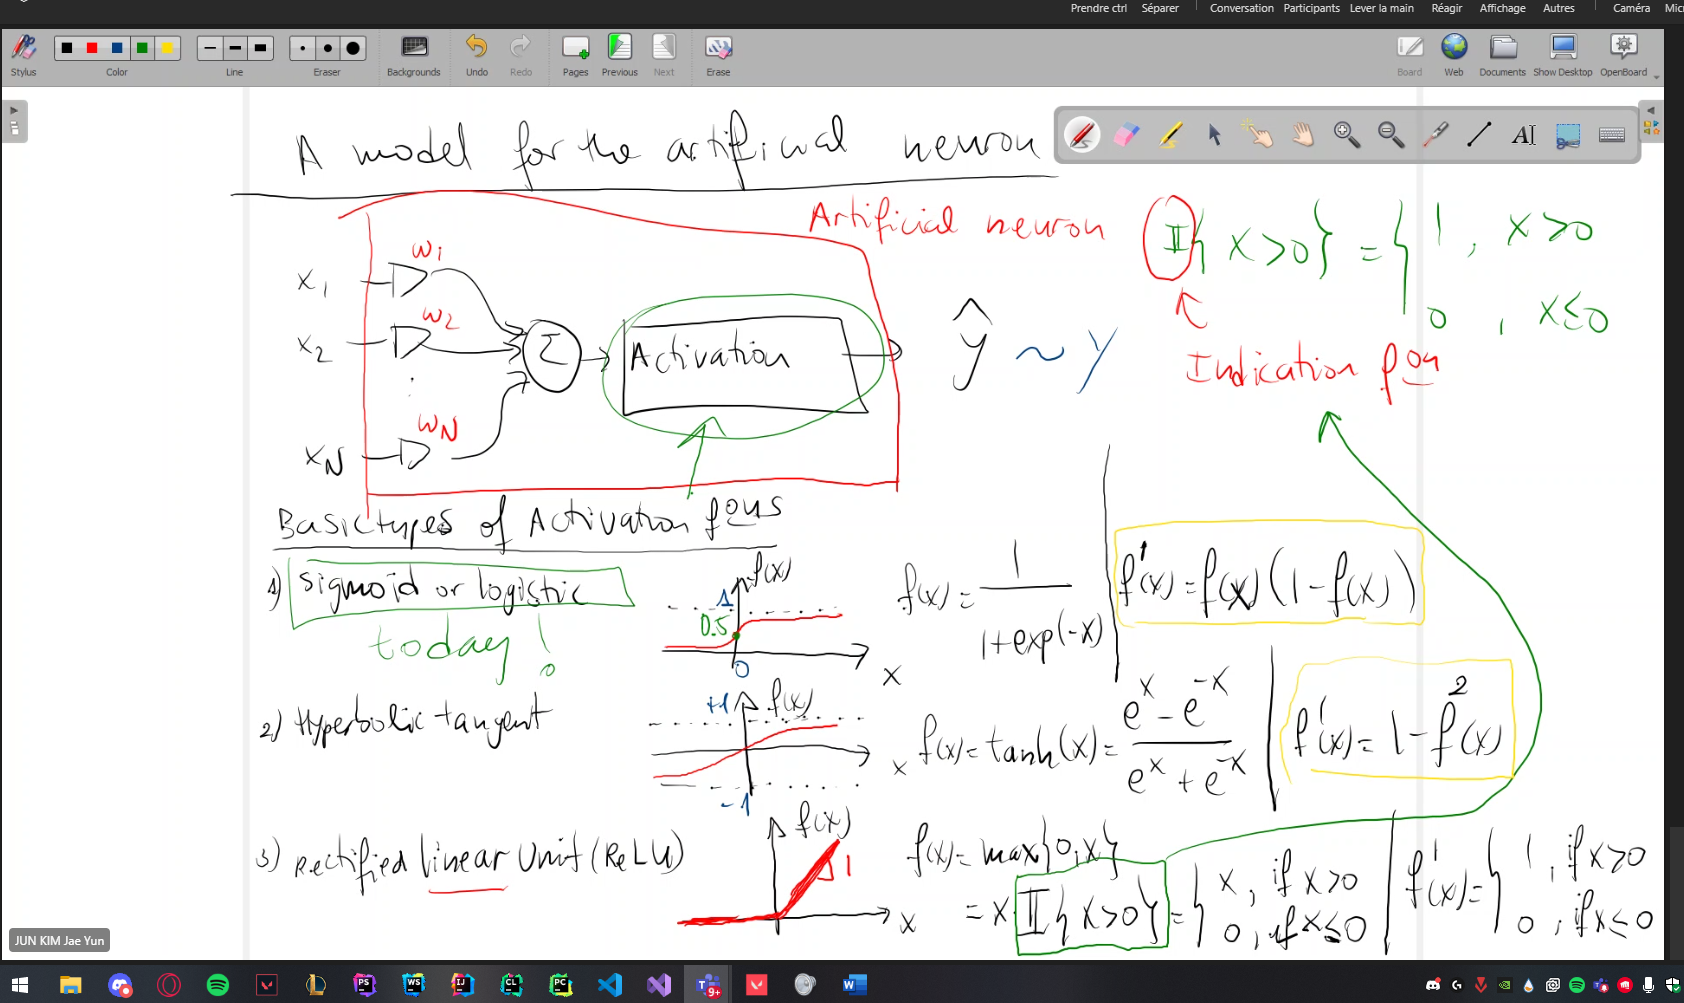 Prendre ctrl Séparer Conversation Participants Lever la main Réagir Affichage Autres Caméra Mic
Stylus Color Line Eraser Backgrounds Undo Redo Pages Previous Next Erase Board Web Documents Show Desktop OpenBoard
A model for the artificial neuron
Artificial neuron
𝕀{x>0} = { 1 , x>0
0 , x≤0
Indication fon
x1 w1
x2 w2
xN wN
Σ
Activation
ŷ ~ y
Basic types of Activation fons
1) sigmoid or logistic
today!
f(x) 1 0.5 0 x
f(x) = 1 / 1+exp(-x)
f'(x) = f(x)(1-f(x))
2) Hyperbolic tangent
+1 f(x) -1 x
f(x) = tanh(x) = e^x - e^-x / e^x + e^-x
f'(x) = 1 - f²(x)
3) Rectified linear Unit (ReLU)
f(x) 1 x
f(x) = max{0,x}
= x·𝕀{x>0} = { x, if x>0
0, if x≤0
f'(x) = { 1, if x>0
0, if x≤0
JUN KIM Jae Yun